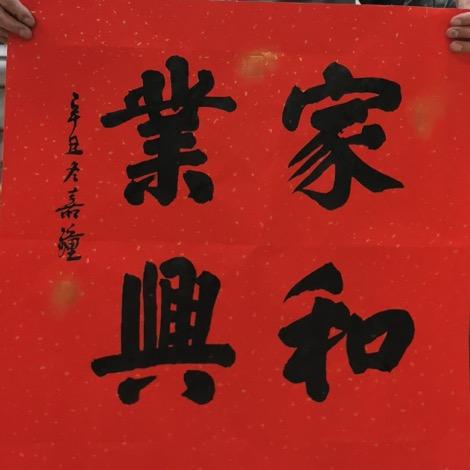 家和
業興
辛丑冬嘉